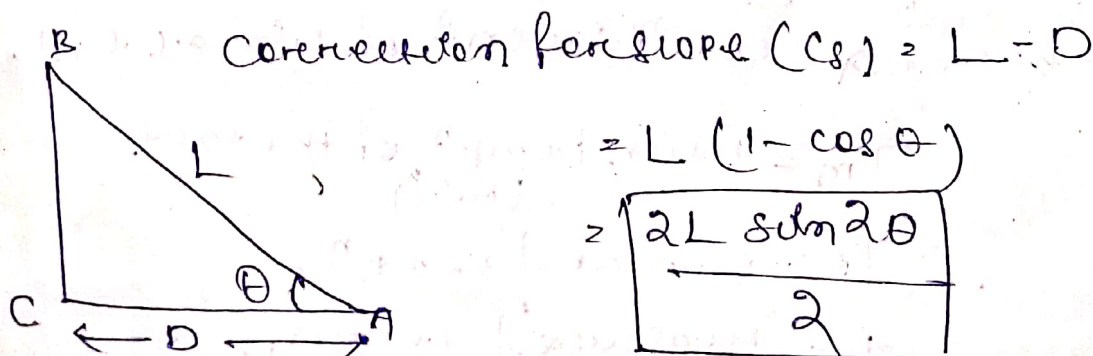 B
Correction for slope (Cs) = L - D
L
= L (1 - cos θ)
= 2L sin 2θ
2
θ
C
A
D